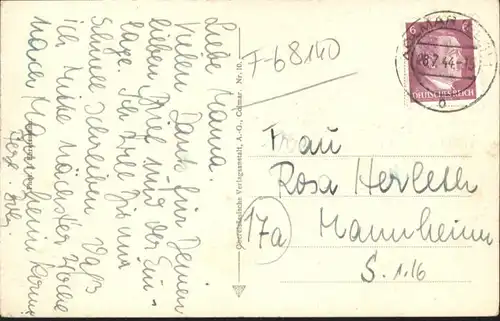 Liebe Mama.
Vielen Dank für Deinen
lieben Brief und der Ein-
lage. Ich will Dir nur
schnell schreiben daß
ich Mitte nächster Woche
nach Mannheim komme
Oberrheinische Verlagsanstalt, A.-G., Colmar. Nr. 10.
F-68140
6
DEUTSCHES REICH
44
b
Frau
Rosa Herleth
17a
Mannheim
S. 1.16